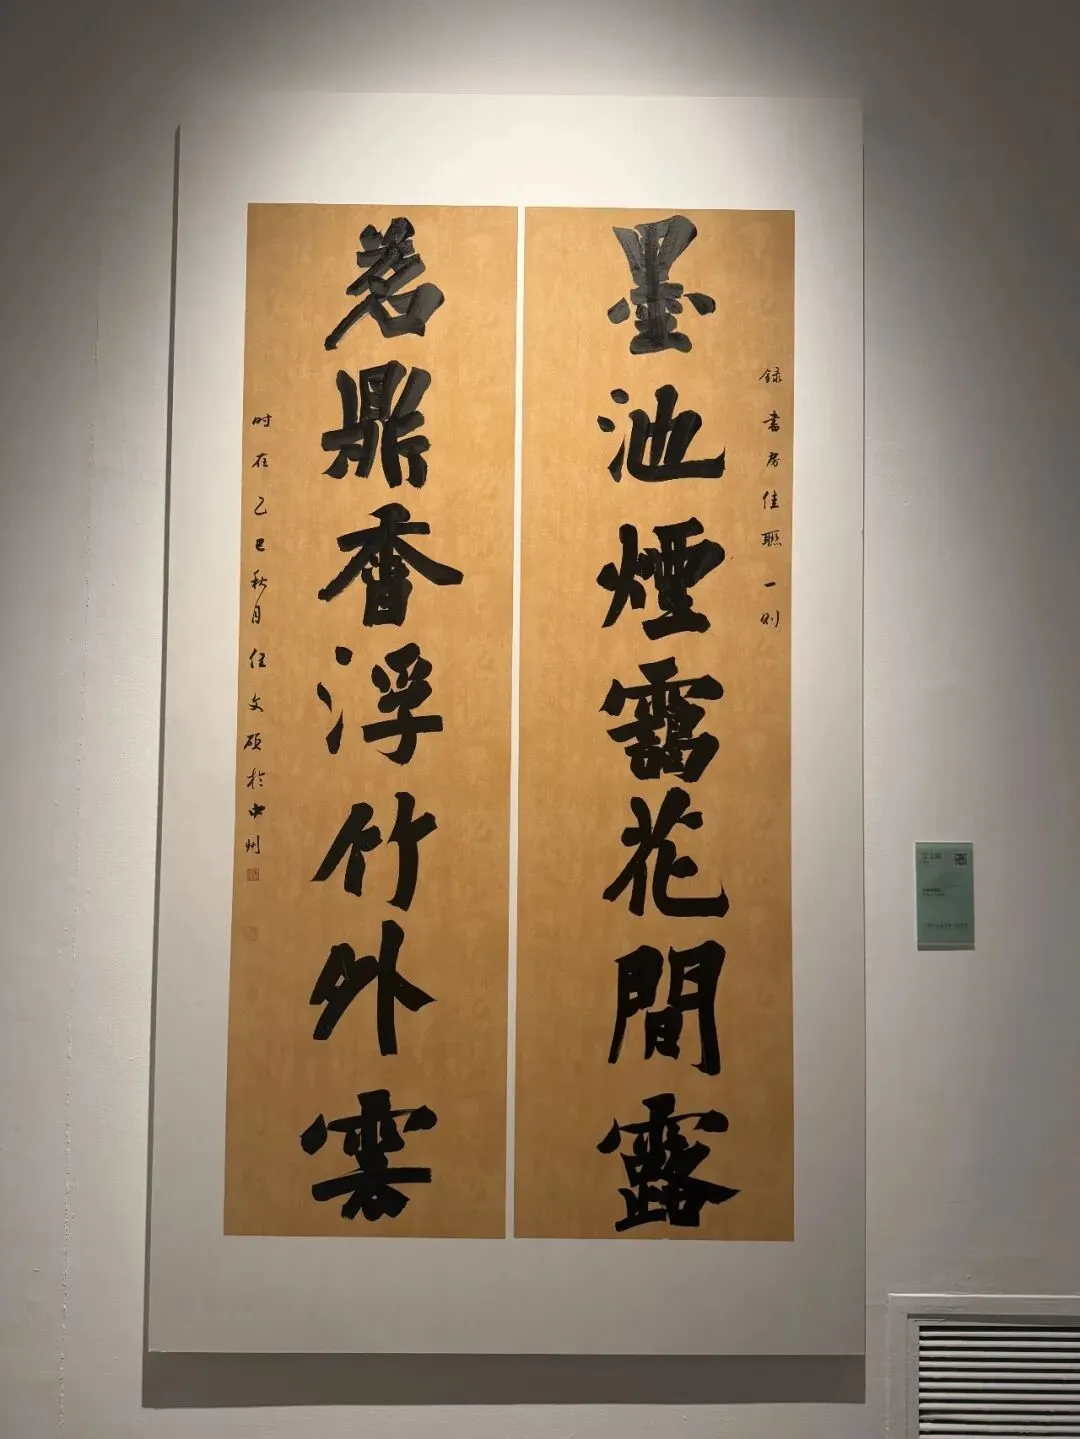 墨池煙靄花間露
錄書房佳聯一則
茗鼎香浮竹外雲
时在乙巳秋月任文硕於中州